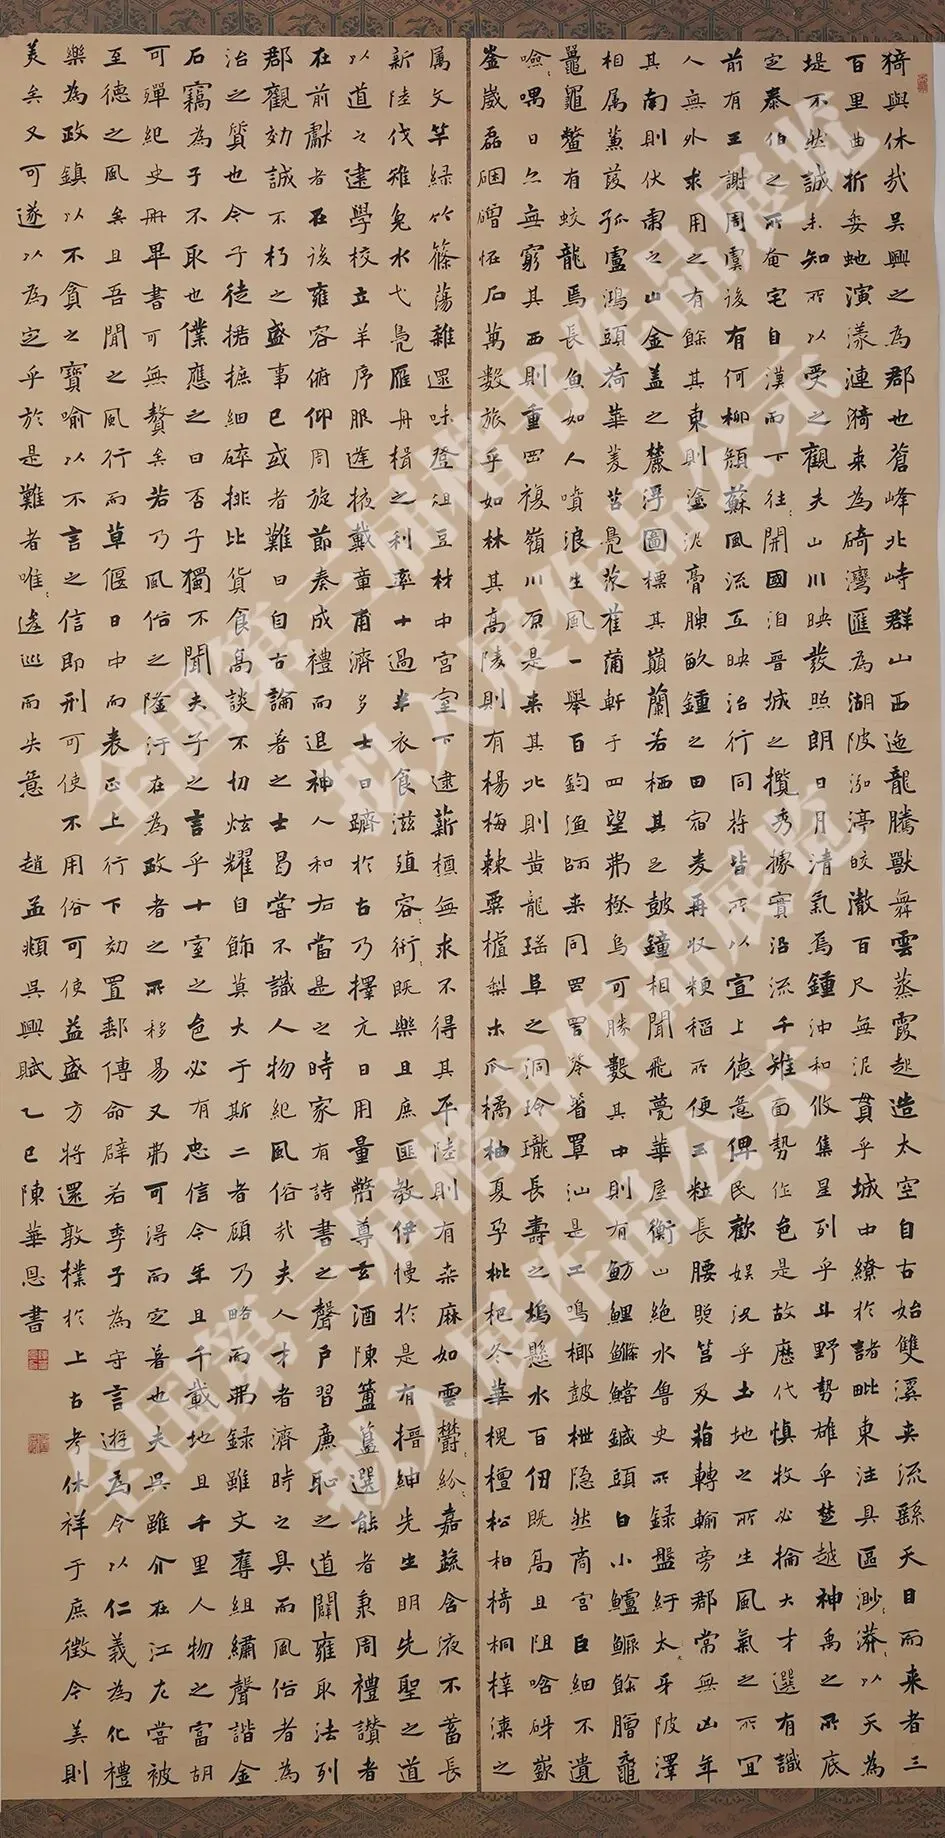 猗與休哉吳興之為郡也蒼峰北峙群山西迤龍騰獸舞雲蒸霞起造太空自古始雙溪夾流繇天目而来者三
百里曲折委虵演漾漣猗来為碕灣匯為湖陂泓渟皎澈百尺無泥貫乎城中繚於諸毗東注具區渺〻漭〻以天為
堤不然誠未知所以受之觀夫山川映發照朗日月清氣焉鍾沖和攸集星列乎斗野勢雄乎楚越神禹之所底
定泰伯之所奄宅自漢而下往〻開國洎晋城之攬秀據實沿流千雉面勢作邑是故歷代慎牧必掄大才選有識
前有王謝周虞後有何柳顏蘇風流互映治行同符皆所以宣上德意俾民歡娛況乎土地之所生風氣之所宜
人無外求用之有餘其東則塗泥膏腴畝鍾之田宿麦再收粳稻所便玉粒長腰照筥及箱轉輸旁郡常無凶年
其南則伏虜之山金蓋之麓浮圖標其巔蘭若栖其足鼓鐘相聞飛甍華屋衡山絕水魯史所録盤紆太牙陂澤
相属蒹葭菰蘆鴻頭荷華菱苕鳧茨萑蒲軒于四望弗極烏可勝數其中則有魴鯉鰷鱨鍼頭白小鱸鱖餘膾龜
鼉黿鳖有蛟龍焉長魚如人噴浪生風一舉百鈞漁師来同罟罾笭箵罩汕是工鳴榔鼓枻隐然商宮巨細不遺
噞喁日亦無窮其西則重岡複嶺川原是来其北則黄龍瑶阜之洞玲瓏長壽之塢懸水百仞既高且阻唅呀嶔
崟崴磊硱磳恠石萬數旅乎如林其高陵則有楊梅棘栗樝梨木瓜橘柚夏孕枇杷冬華槐檀松柏椅桐梓漆之
属文竿緑竹篠蕩雜還味登俎豆材中宮室下逮薪槱無求不得其平陸則有桒麻如雲鬱〻紛〻嘉蔬含液不蓄長
新陸伐雉兔水弋鳧雁舟楫之利率十過半衣食滋殖容〻衎〻既樂且庶匪教伊慢於是有搢紳先生明先聖之道
以道之建學校立羊序服逢掖戴章甫濟〻多士日躋於古乃擇元日用量幣尊玄酒陳簠簋選能者秉周禮讃者
在前獻者在後雍容俯仰周旋節奏成禮而退神人和右當是之時家有詩書之聲户習廉恥之道闢雍取法列
郡觀効誠不朽之盛事已或者難曰自古論著之士曷嘗不識人物紀風俗哉夫人才者濟時之具而風俗者為
治之質也今子徒捃摭細碎排比貨食高談不切炫耀自飾莫大于斯二者顧乃略而弗録雖文奪組繡聲諧金
石竊為子不取也僕應之曰否子獨不聞夫子之言乎十室之邑必有忠信今年且千載地且千里人物之富胡
可殫紀史冊畢書可無贅矣若乃風俗之隆汙在為政者之所移易又弗可得而定著也夫吳雖介在江左嘗被
至德之風矣且吾聞之風行而草偃日中而表正上行下効置郵傳命辟若季子為守言遊為令以仁義為化禮
樂為政鎮以不貪之寶喻以不言之信即刑可使不用俗可使益盛方將還敦樸於上古考休祥于庶徵今美則
美矣又可遂以為定乎於是難者唯〻逡巡而失意 趙孟頫吳興賦乙巳陳華恩書
全国第二届楷书作品展览
拟入展作品公示
全国第二届楷书作品展览
拟入展作品公示